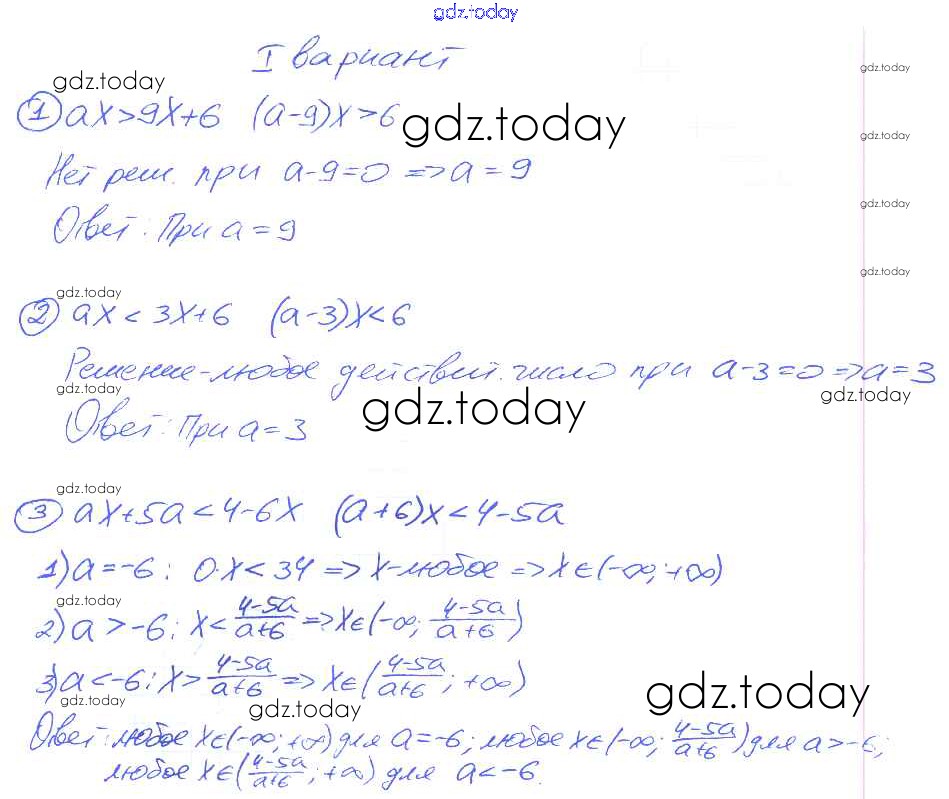 gdz.today
I вариант
gdz.today
gdz.today
① ax>9x+6 (a-9)x>6
gdz.today
gdz.today
Нет реш. при a-9=0 => a=9
gdz.today
Ответ: При a=9
gdz.today
gdz.today
② ax<3x+6 (a-3)x<6
Решение - любое действит. число при a-3=0 => a=3
gdz.today
gdz.today
gdz.today
Ответ: При a=3
gdz.today
③ ax+5a<4-6x (a+6)x<4-5a
1) a=-6: 0·x<34 => x-любое => x∈(-∞;+∞)
gdz.today
2) a>-6: x<(4-5a)/(a+6) => x∈(-∞; (4-5a)/(a+6))
3) a<-6: x>(4-5a)/(a+6) => x∈((4-5a)/(a+6); +∞)
gdz.today
gdz.today
gdz.today
Ответ: любое x∈(-∞;+∞) для a=-6; любое x∈(-∞; (4-5a)/(a+6)) для a>-6;
любое x∈((4-5a)/(a+6); +∞) для a<-6.